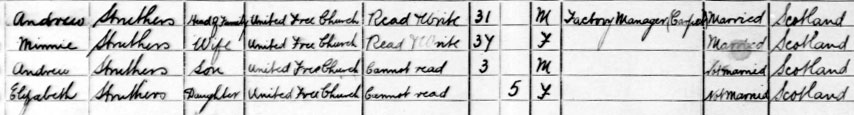 Andrew Struthers Head of Family United Free Church Read & Write 31 M Factory Manager (Carpet) Married Scotland
Minnie Struthers Wife United Free Church Read & Write 34 F Married Scotland
Andrew Struthers Son United Free Church Cannot read 3 M Not Married Scotland
Elizabeth Struthers Daughter United Free Church Cannot read 5 F Not Married Scotland